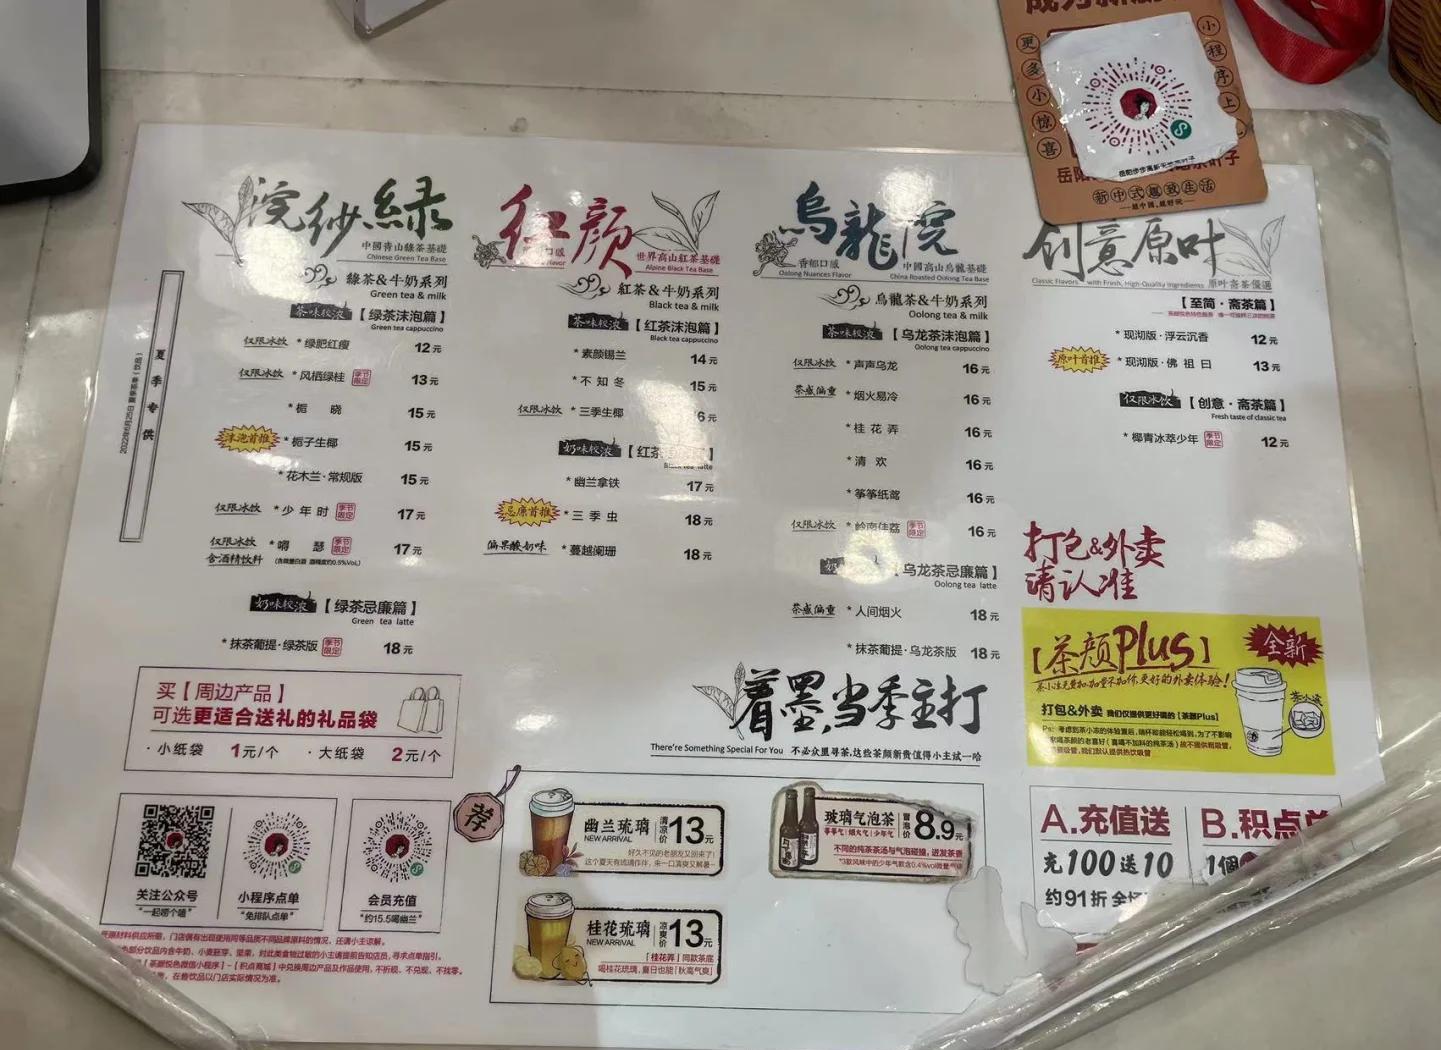 更多小惊喜
小程序上
新中式趣致生活
夏季专供
浣纱緑
中國青山綠茶基礎
Chinese Green Tea Base
綠茶&牛奶系列
Green tea & milk
茶味较浓【绿茶沫泡篇】
Green tea cappuccino
仅限冰饮 *绿肥红瘦 12元
仅限冰饮 *风栖绿桂 季节限定 13元
*栀 晓 15元
沫泡首推 *栀子生椰 15元
*花木兰·常规版 15元
仅限冰饮 *少年时 季节限定 17元
仅限冰饮 *嘚 瑟 季节限定 17元
含酒精饮料
奶味较浓【绿茶忌廉篇】
Green tea latte
*抹茶葡提·绿茶版 季节限定 18元
红颜
口感
世界高山紅茶基礎
Alpine Black Tea Base
紅茶&牛奶系列
Black tea & milk
茶味较浓【红茶沫泡篇】
Black tea cappuccino
*素颜锡兰 14元
*不知冬 15元
仅限冰饮 *三季生椰 6元
奶味较浓【红茶
*幽兰拿铁 17元
忌廉首推 *三季虫 18元
偏果酸奶味 *蔓越阑珊 18元
烏龍院
香郁口感
Oolong Nuances Flavor
中國高山烏龍基礎
China Roasted Oolong Tea Base
烏龍茶&牛奶系列
Oolong tea & milk
茶味较浓【乌龙茶沫泡篇】
Oolong tea cappuccino
仅限冰饮 *声声乌龙 16元
茶感偏重 *烟火易冷 16元
*桂花弄 16元
*清欢 16元
*筝筝纸鸢 16元
仅限冰饮 *岭南佳荔 季节限定 16元
乌龙茶忌廉篇】
Oolong tea latte
茶感偏重 *人间烟火 18元
*抹茶葡提·乌龙茶版 18元
创意原叶
Classic Flavors with Fresh, High-Quality Ingredients 原叶斋茶優選
【至简·斋茶篇】
*现沏版·浮云沉香 12元
原叶首推 *现沏版·佛祖曰 13元
仅限冰饮【创意·斋茶篇】
Fresh taste of classic tea
*椰青冰萃少年 季节限定 12元
打包&外卖
请认准
【茶颜Plus】
全新
打包&外卖 我们仅提供更好喝的【茶颜Plus】
茶小冰
买【周边产品】
可选更适合送礼的礼品袋
·小纸袋 1元/个 ·大纸袋 2元/个
关注公众号
"一起唠个嗑"
小程序点单
"免排队点单"
会员充值
"约15.5喝幽兰"
着墨,当季主打
There're Something Special For You 不必众里寻茶,这些茶颜新贵值得小主试一哈
荐
幽兰琉璃
NEW ARRIVAL
清凉价 13元
好久不见的老朋友又回来了!
桂花琉璃
NEW ARRIVAL
凉爽价 13元
「桂花弄」同款茶底
喝桂花琉璃,夏日也能「秋高气爽」
玻璃气泡茶
筝筝气|烟火气|少年气
冒泡价 8.9元
不同的纯茶茶汤与气泡碰撞,迸发茶香
A.充值送
充100送10
约91折
B.积点
1個